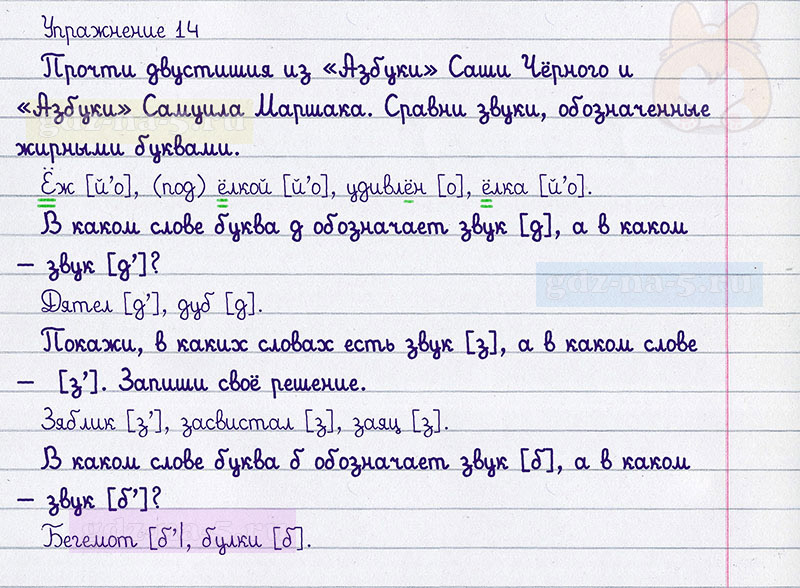 Упражнение 14
Прочти двустишия из «Азбуки» Саши Чёрного и
«Азбуки» Самуила Маршака. Сравни звуки, обозначенные
жирными буквами.
Ёж [й’о], (под) ёлкой [й’о], удивлён [о], ёлка [й’о].
В каком слове буква д обозначает звук [д], а в каком
– звук [д’]?
gdz-na-5.ru
Дятел [д’], дуб [д].
Покажи, в каких словах есть звук [з], а в каком слове
– [з’]. Запиши своё решение.
Зяблик [з’], засвистал [з], заяц [з].
В каком слове буква б обозначает звук [б], а в каком
– звук [б’]?
Бегемот [б’|, булки [б].